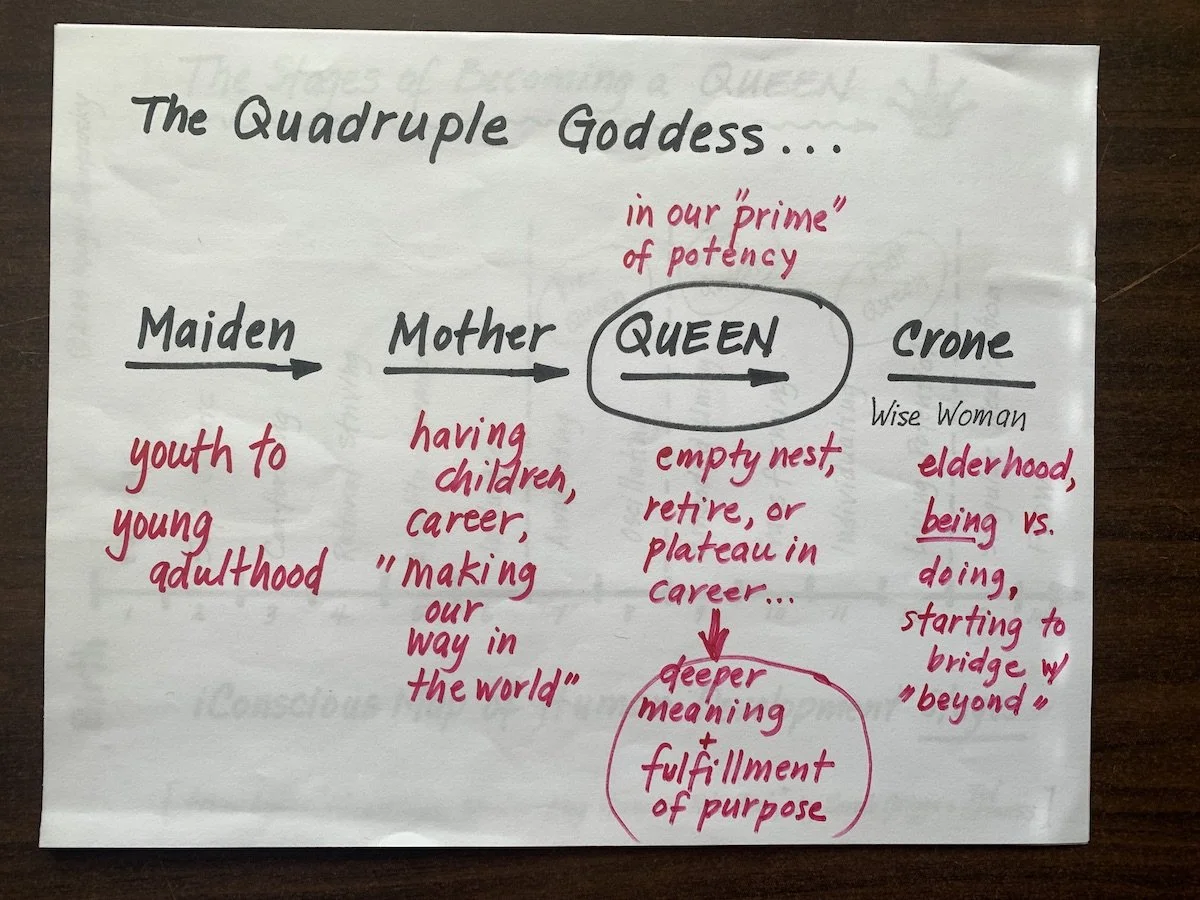 The Stages of Becoming a QUEEN
The Quadruple Goddess...
in our "prime"
of potency
Maiden
youth to
young
adulthood
Mother
having
children,
career,
"making
our
way in
the world"
QUEEN
empty nest,
retire, or
plateau in
career...
deeper
meaning
+
fulfillment
of purpose
Crone
Wise Woman
elderhood,
being vs.
doing,
starting to
bridge w/
"beyond"